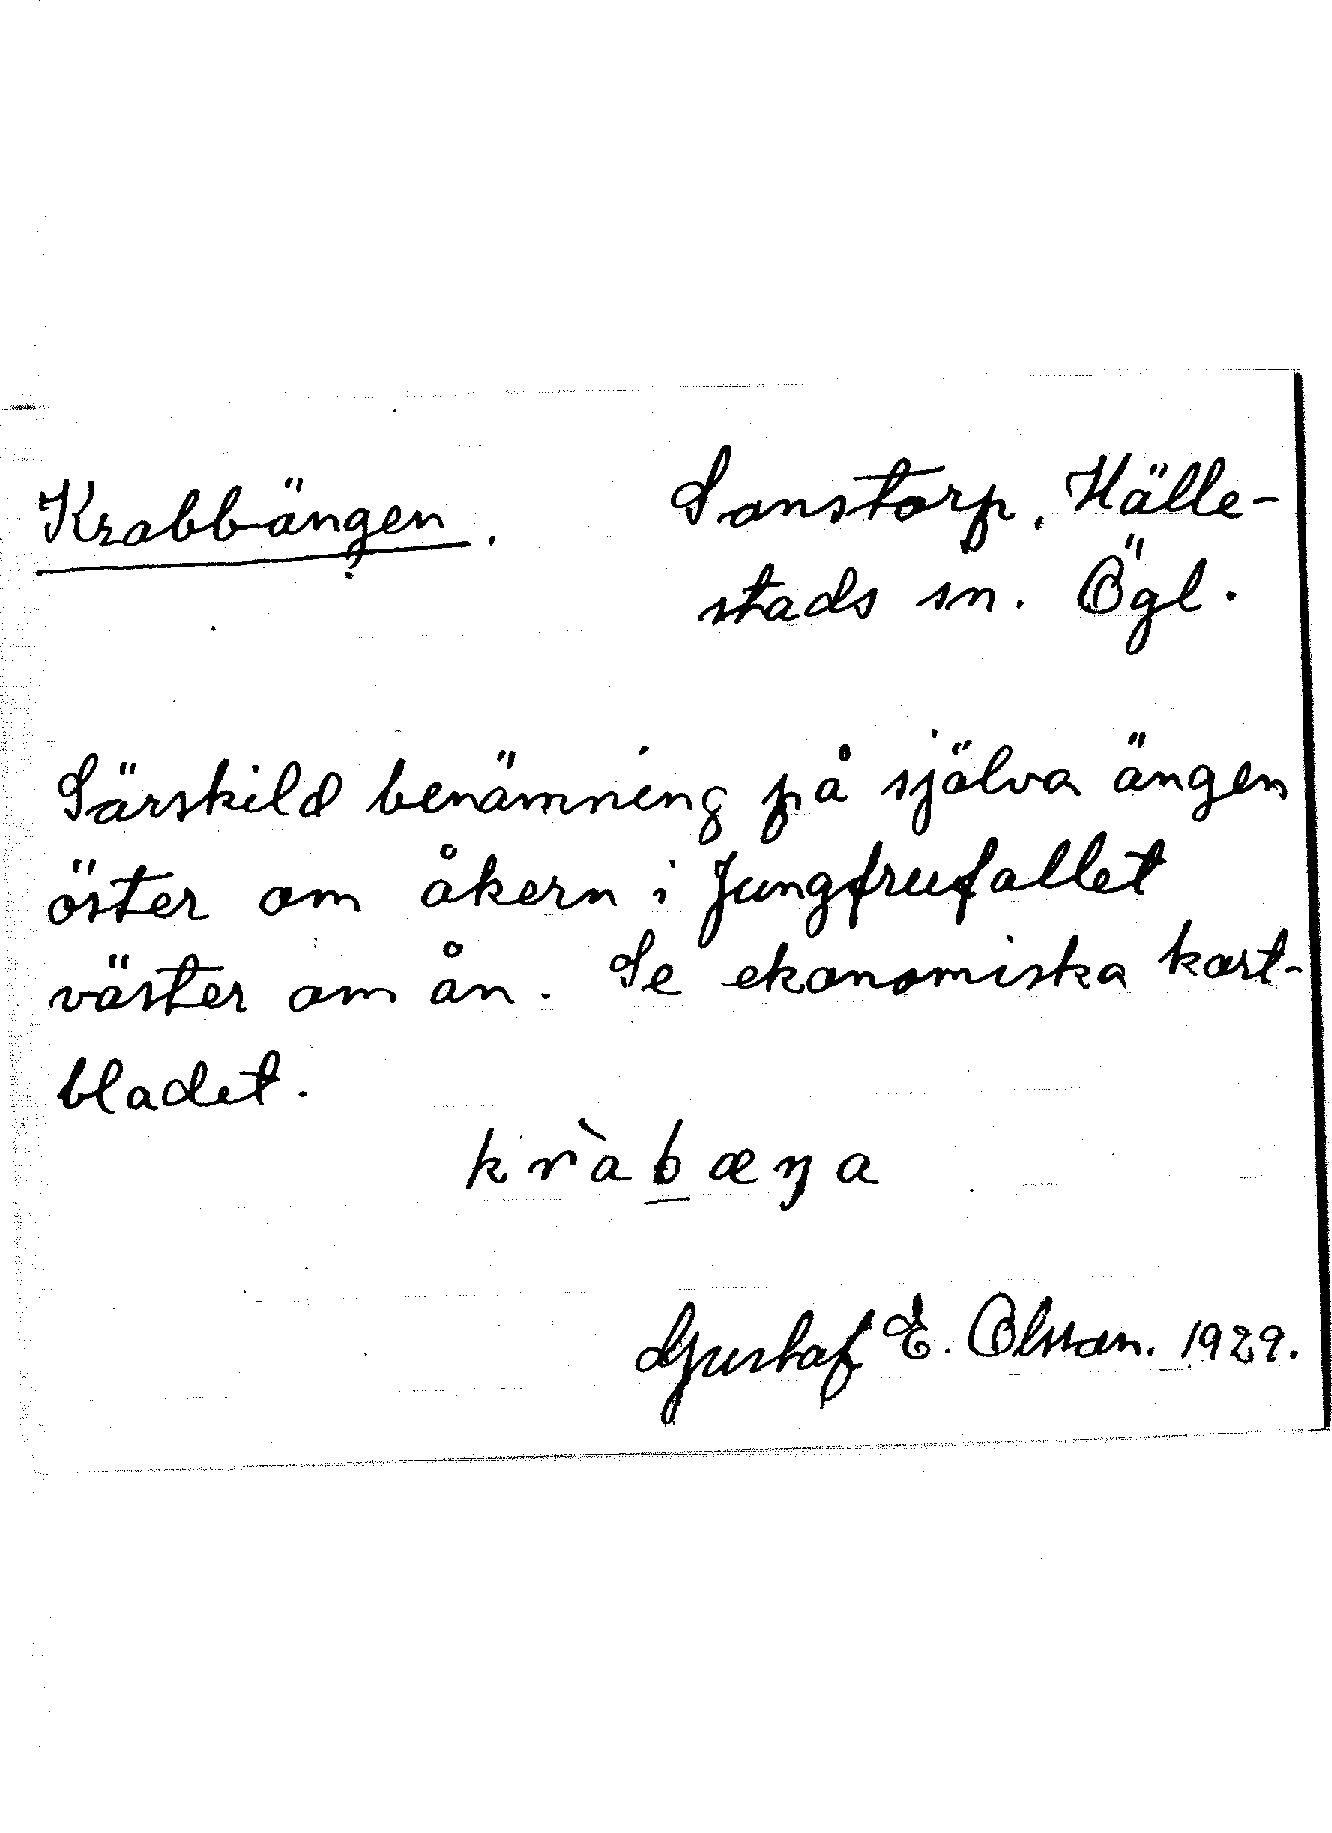 Krabbängen. Sonstorp, Hälle-
stads sn. Ögl.
Särskild benämning på själva ängen
öster om åkern i Jungfrufallet
väster om ån. Se ekonomiska kart-
bladet.
kràb̲æŋa
Gustaf E. Olsson. 1929.